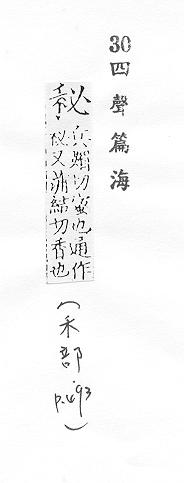 30 四聲篇海
秘 兵媚切蜜也通作
又蒲結切香也
(禾部 p.493)